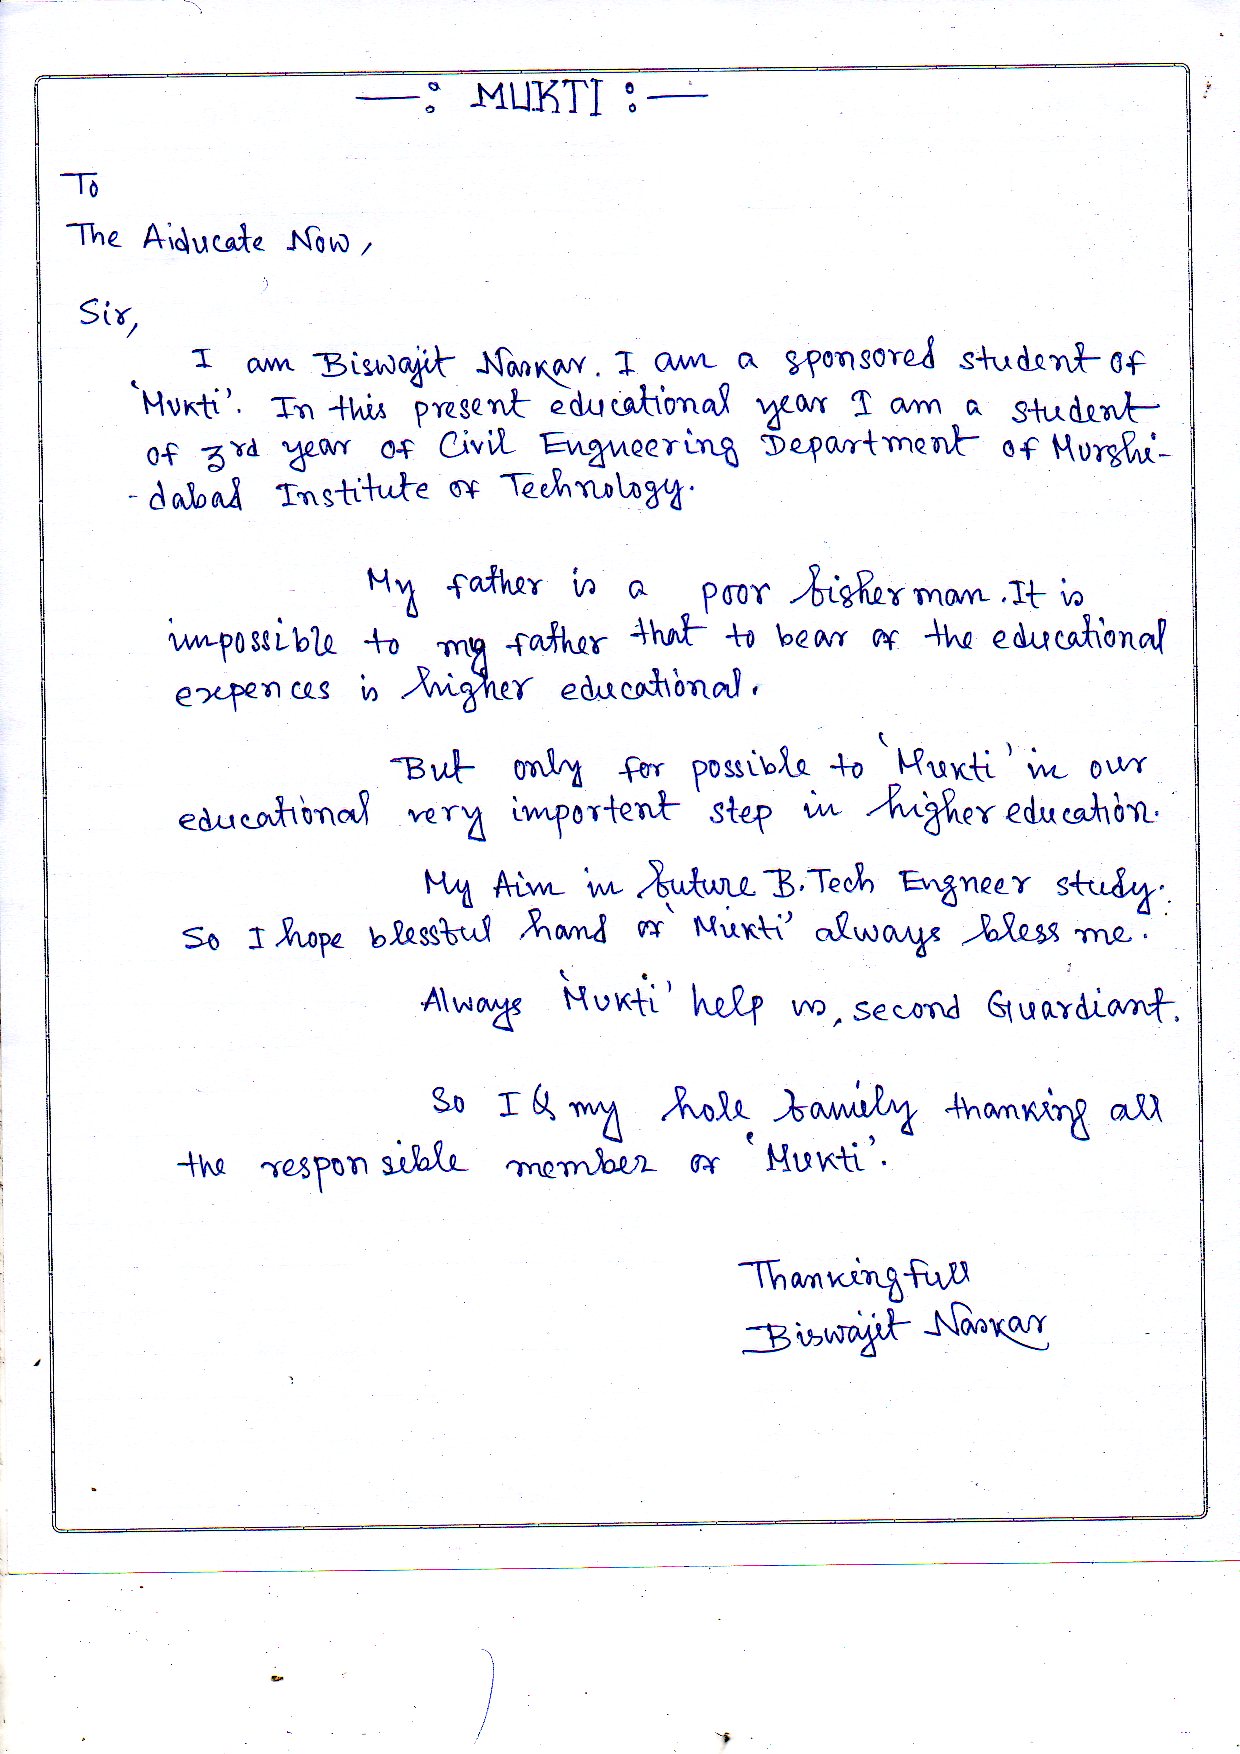 —: MUKTI :—
To
The Aiducate Now,
Sir,
I am Biswajit Naskar. I am a sponsored student of
'Mukti'. In this present educational year I am a student
of 3rd year of Civil Engneering Department of Murshi-
-dabad Institute of Technology.
My father is a poor fisher man. It is
impossible to my father that to bear of the educational
expences is higher educational.
But only for possible to 'Mukti' in our
educational very importent step in higher education.
My Aim in future B.Tech Engneer study.
So I hope blessful hand of 'Mukti' always bless me.
Always 'Mukti' help us, second Guardiant.
So I & my hole family thanking all
the responsible member of 'Mukti'.
Thankingfull
Biswajit Naskar